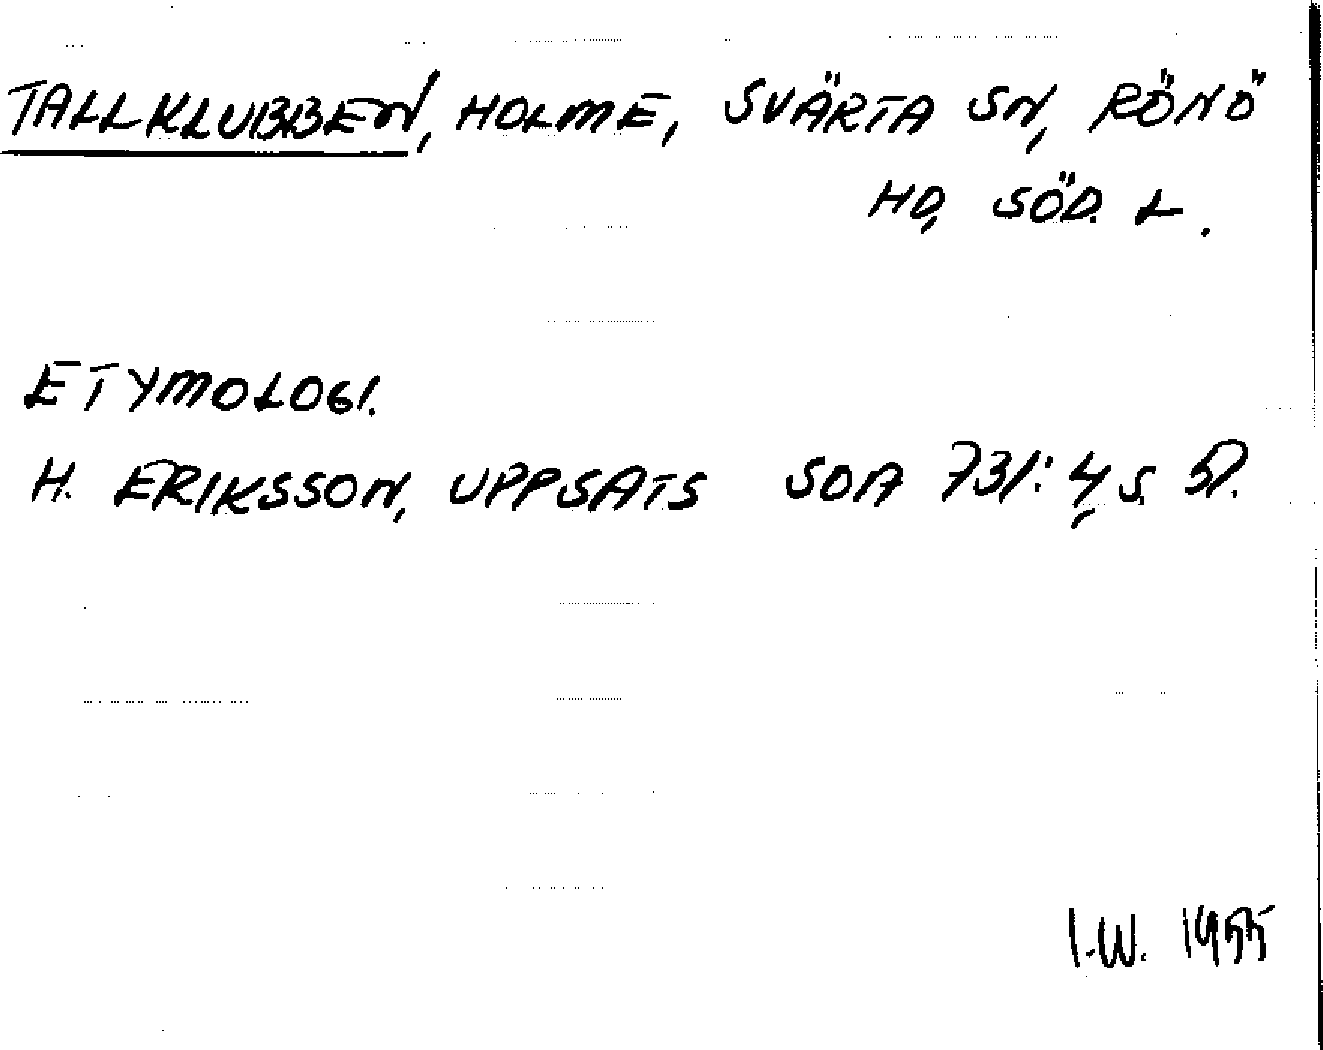 TALLKLUBBEN, HOLME, SVÄRTA SN, RÖNÖ
HD, SÖD. L.
ETYMOLOGI.
H. ERIKSSON, UPPSATS SOA 731:4, S.
I.W. 1955